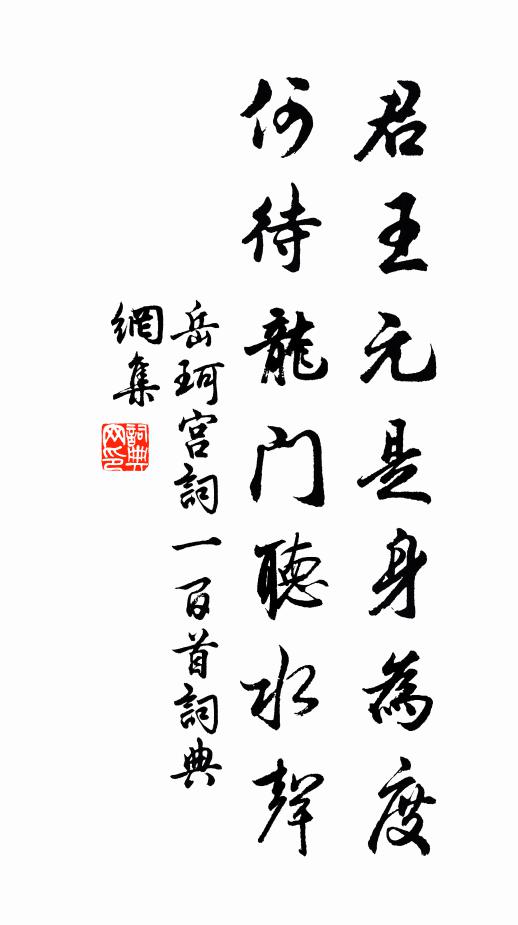 君王元是身為度
何待龍門聽水聲
岳珂宮詞一百首詞典
網集
詞典
网印